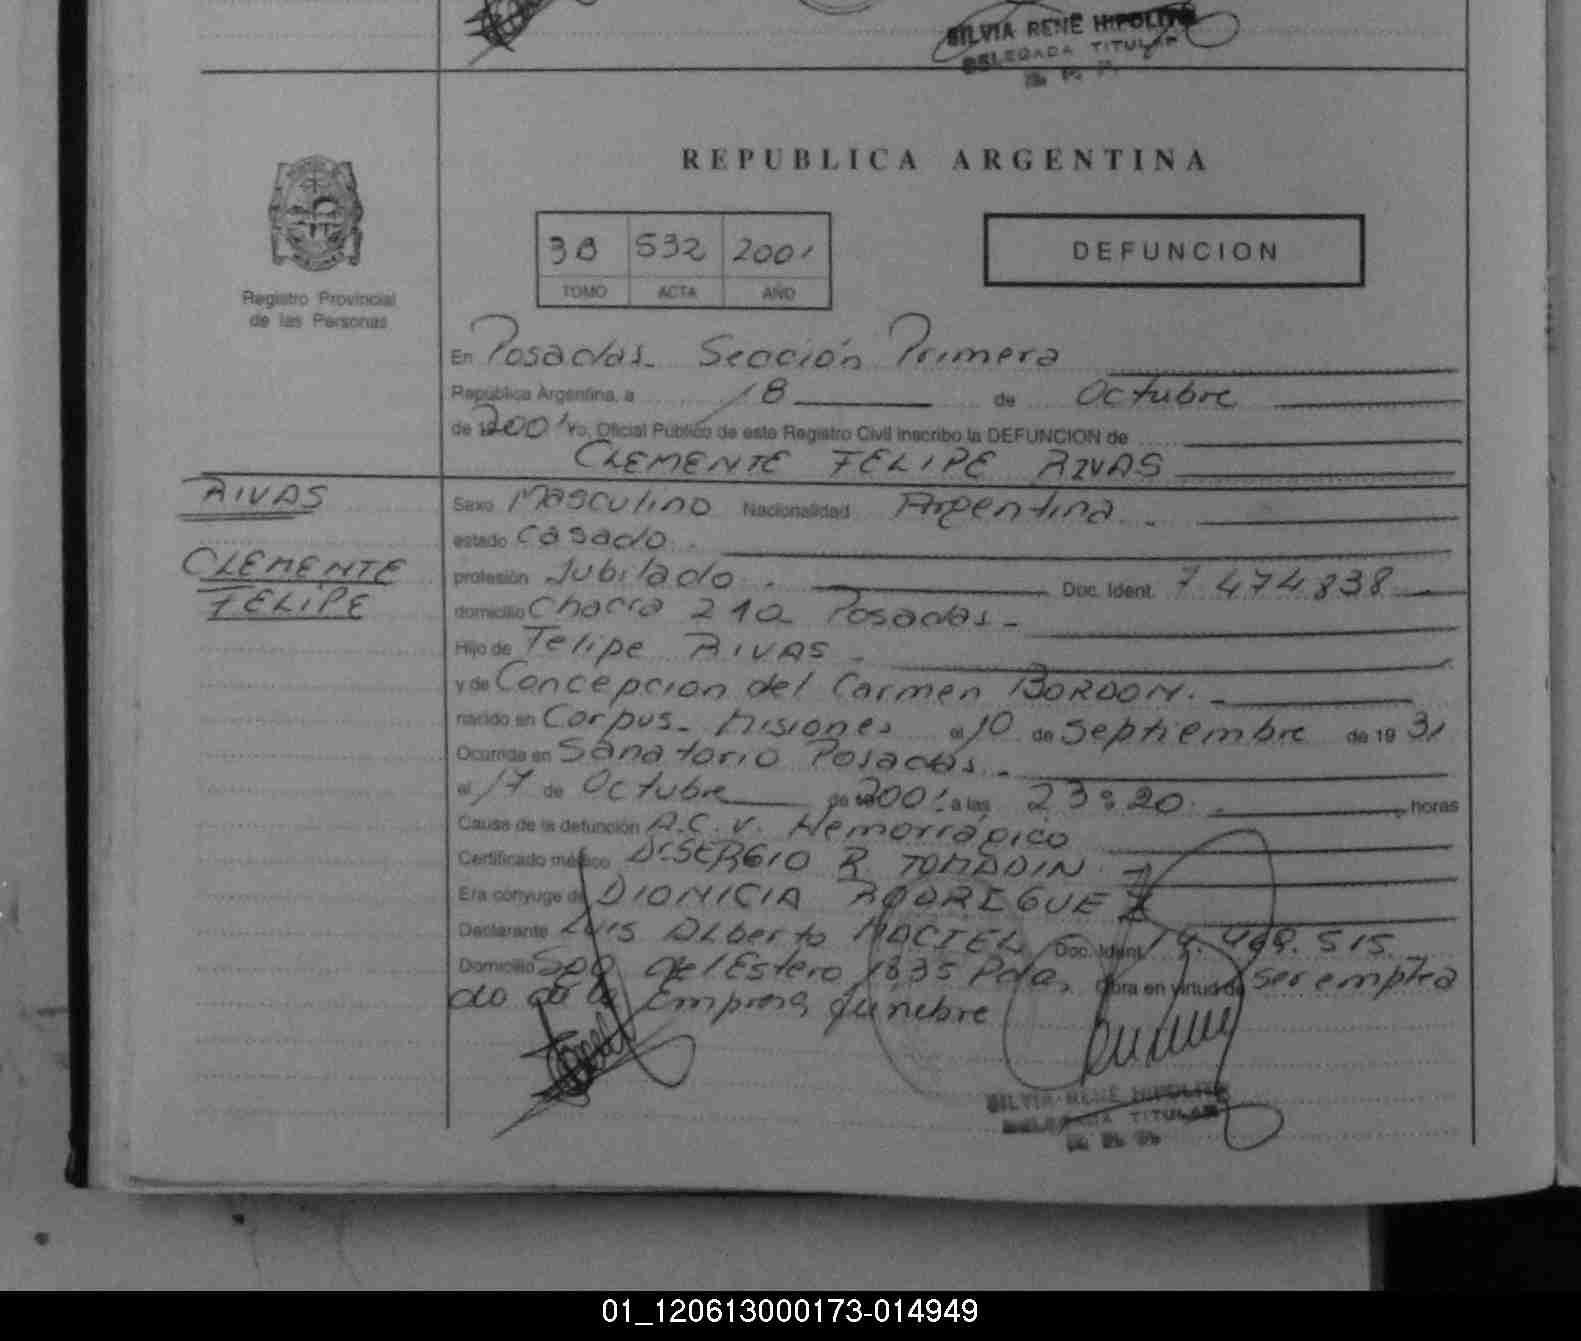 SILVIA RENE HIPOLITO
DELEGADA TITULAR
R. P. P.
REPUBLICA ARGENTINA
3B 532 2001
TOMO ACTA AÑO
DEFUNCION
Registro Provincial
de las Personas
En Posadas. Sección Primera
República Argentina, a 18 de Octubre
de 2001 Yo, Oficial Público de este Registro Civil inscribo la DEFUNCION de
CLEMENTE FELIPE RIVAS
RIVAS
CLEMENTE
FELIPE
Sexo Masculino Nacionalidad Argentina.
estado Casado.
profesión Jubilado. Doc. Ident. 7.474.838
domicilio Chacra 210 Posadas-
Hijo de Felipe RIVAS.
y de Concepcion del Carmen BORDON.
nacido en Corpus- Misiones el 10 de Septiembre de 1931
Ocurrida en Sanatorio Posadas.
el 17 de Octubre de 2001 a las 23:20. horas
Causa de la defunción A.C.V. Hemorrágico
Certificado médico Dr SERGIO R TOMADIN
Era cónyuge de DIONICIA RODRIGUEZ
Declarante Luis ALberto MACIEL Doc. Ident. 14.498.515.
Domicilio Sgo del Estero 1835 Pdas. Obra en virtud de ser emplea
do de la Empresa fúnebre
SILVIA RENE HIPOLITO
DELEGADA TITULAR
R. P. P.
01_120613000173-014949